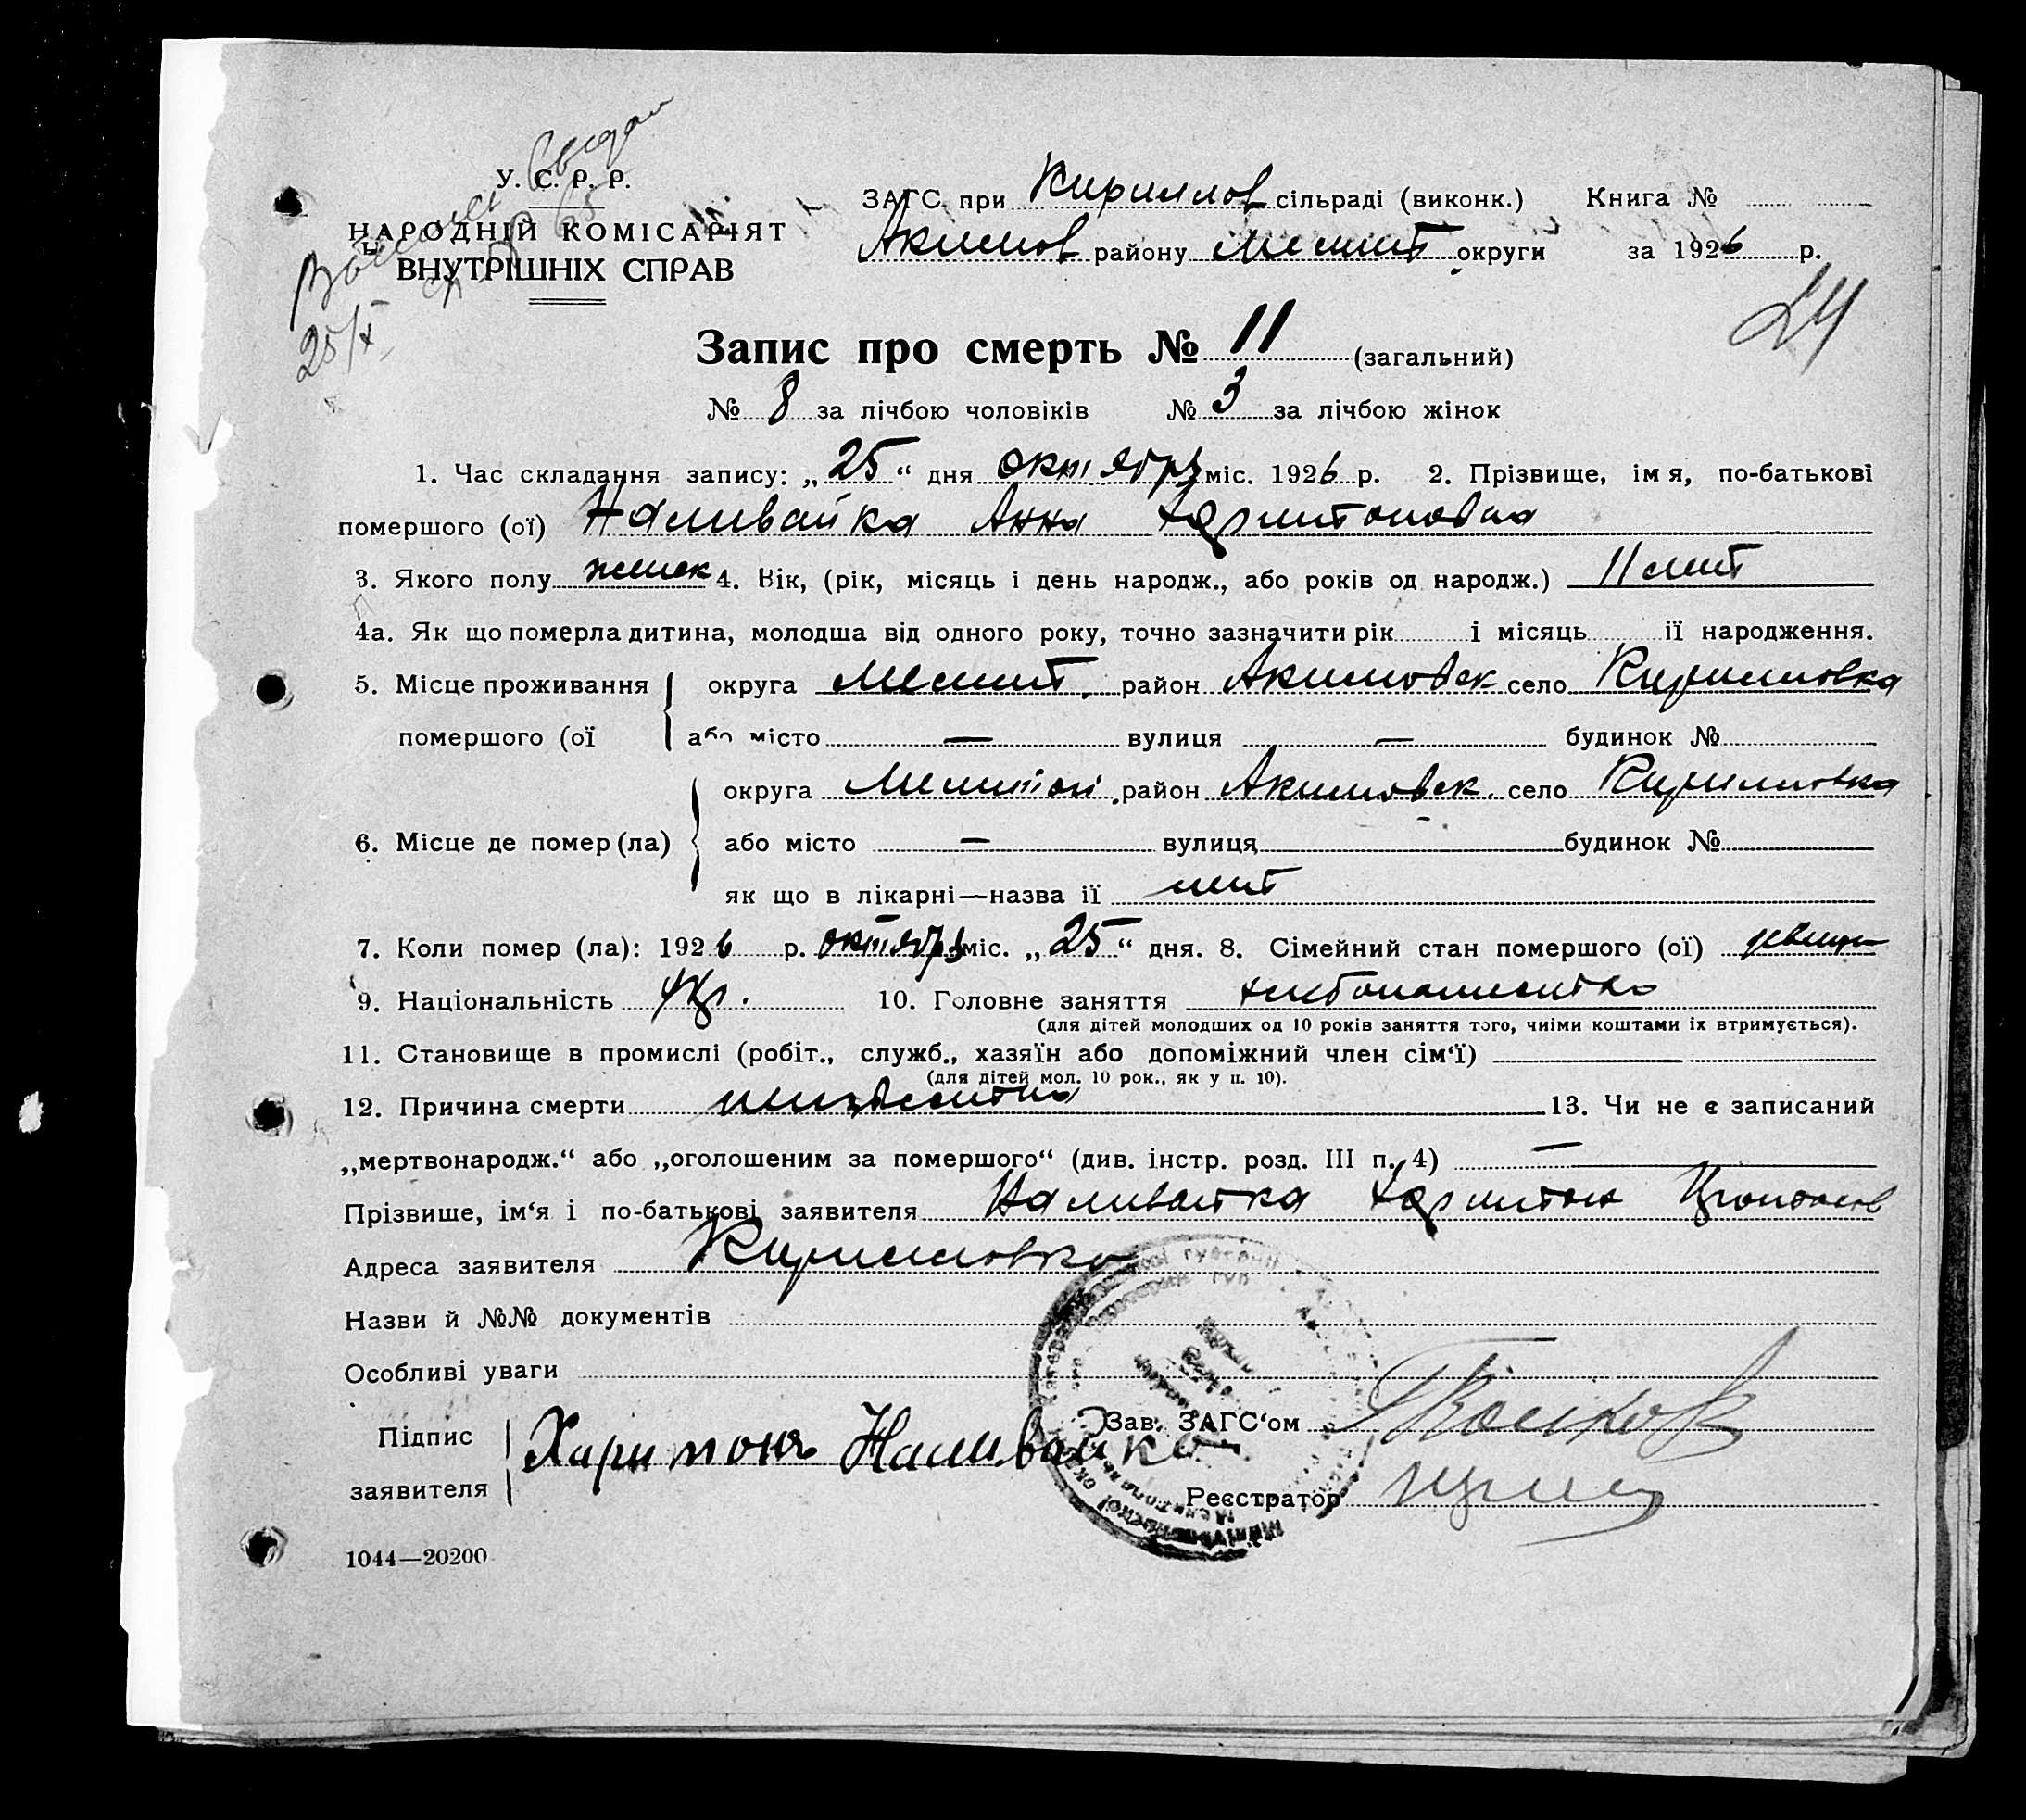 У. С. Р. Р.
НАРОДНІЙ КОМІСАРІЯТ
ВНУТРІШНІХ СПРАВ
25/X
ЗАГС при Кириллов сільраді (виконк.) Книга №
Акимов району Мелит округи за 1926 р.
24
Запис про смерть № 11 (загальний)
№ 8 за лічбою чоловіків № 3 за лічбою жінок
1. Час складання запису: „25“ дня октября міс. 1926 р. 2. Прізвище, імя, по-батькові
помершого (ої) Наливайка Анна Харитоновна
3. Якого полу женск 4. Вік, (рік, місяць і день народж., або років од народж.) 11 лет
4а. Як що померла дитина, молодша від одного року, точно зазначити рік і місяць її народження.
5. Місце проживання округа Мелит. район Акимовск село Кирилловка
помершого (ої або місто — вулиця — будинок №
округа Мелитоп. район Акимовск. село Кирилловка
6. Місце де помер (ла) або місто — вулиця будинок №
як що в лікарні—назва її нет
7. Коли помер (ла): 1926 р. октября міс. „25“ дня. 8. Сімейний стан помершого (ої) девица
9. Національність укр. 10. Головне заняття хлебопашество
(для дітей молодших од 10 років заняття того, чиїми коштами їх втримується).
11. Становище в промислі (робіт., служб., хазяїн або допоміжний член сім‘ї)
(для дітей мол. 10 рок., як у п. 10).
12. Причина смерти неизвестна 13. Чи не є записаний
„мертвонародж.“ або „оголошеним за помершого“ (див. інстр. розд. III п. 4) —
Прізвище, ім‘я і по-батькові заявителя Наливайка Харитон
Адреса заявителя Кирилловка
Назви й №№ документів
Особливі уваги
Підпис
заявителя
Харитонъ Наливайко
Зав. ЗАГС‘ом
Реєстратор
1044—20200